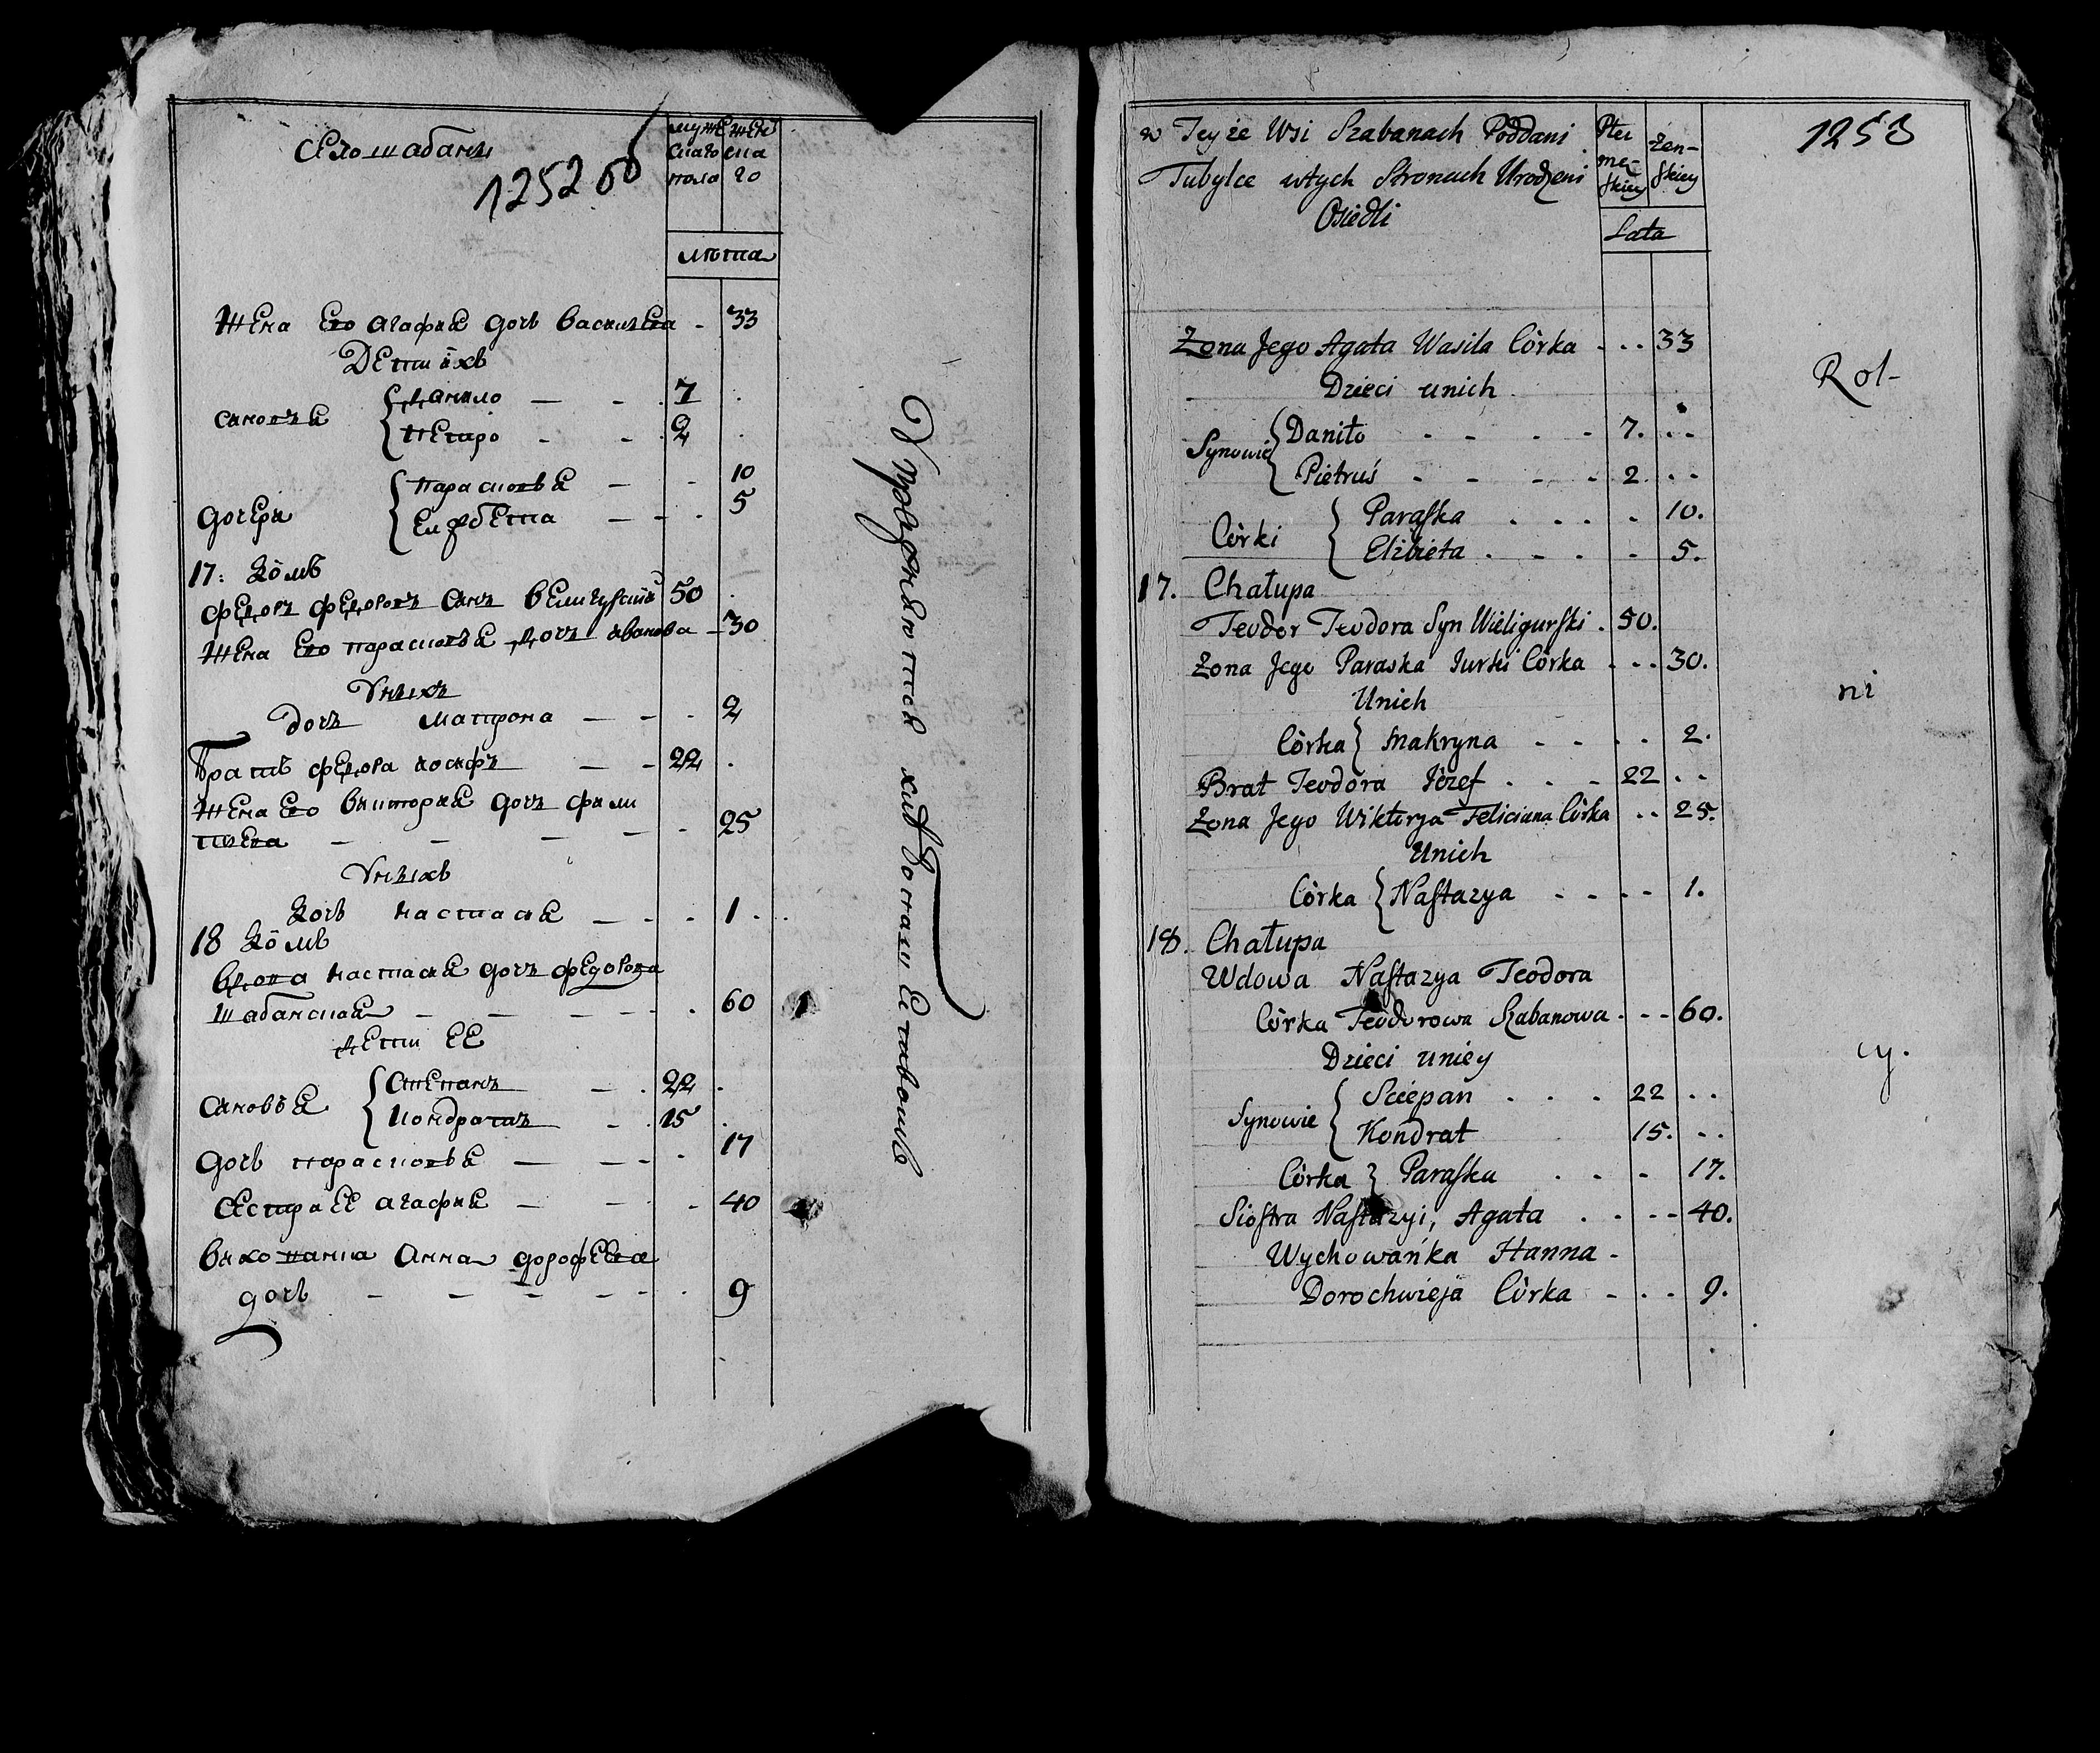 Село шабани
1252 об
мужеска го пола
женска го
лѣта
Жена Его агафия дочь василева - 33
Дети ихъ
сановя { данило — - 7
петро - - 2
дочери { парасковья — - 10
Елзбета — - - 5
17: домъ
федоръ федоровъ санъ велигурский 50
Жена Его парасковя дочь иванова - 30
Унихъ
дочь матрона — - - 2
Братъ федора иосифъ — - 22
Жена Его виктория дочь фили
пова — - — - - 25
Унихъ
дочь настася — - - 1
18 домъ
вдова настася дочь федорова
шабанская - — - - 60
дети ЕЕ
сановья { степанъ — - 22
кондратъ - 15
дочь парасковья — - - 17
сестра ЕЕ агафия — - - 40
вихованка Анна дорофеева
дочь - - - - 9
Упражняются хлѣбопашествомъ
w Teyże Wsi Szabanach Poddani
Tubylce wtych Stronach Urodzeni
Osiedli
Płei męskiey
żenskiey
Lata
1253
Żona Jego Agata Wasila Córka - - - 33
Dzieci unich
Synowie { Daniło - - - - 7. - -
Pietruś - - - - 2. - -
Córki { Paraska . . . - 10.
Elżbieta . - - - 5.
17. Chałupa
Teodor Teodora Syn Wieligurski . 50.
Żona Jego Paraska Jurki Córka - - - 30.
Unich
Córka } Makryna - - - - 2.
Brat Teodora Józef . . - 22 - -
Żona Jego Wiktorya Feliciana Córka - - 25.
Unich
Córka { Nastazya - - - - 1.
18. Chałupa
Wdowa Nastazya Teodora
Córka Teodorowa Szabanowa - - - 60.
Dzieci uniey
Synowie { Sciepan . . . 22 . .
Kondrat 15. - .
Córka } Paraska . . - 17.
Siostra Nastazyi, Agata . . - - 40.
Wychowańka Hanna -
Dorochwieja Córka - - - 9.
Rol-
ni
cy.